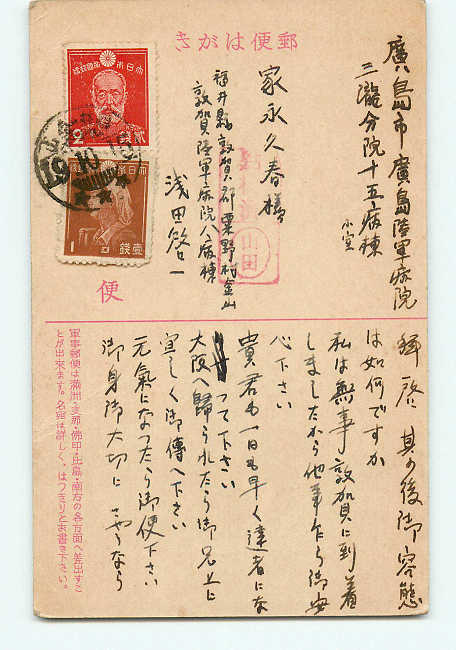 郵便はがき
廣島市廣島陸軍病院
三瀧分院十五病棟
小室
家永久春様
福井縣敦賀郡粟野村金山
敦賀陸軍病院八病棟
浅田啓一
山田
大日本帝國郵便
2
貳錢
大日本帝國郵便
1
壹錢
19
便
拝啓 其の後御容態
は如何ですか
私は無事敦賀に到着
しましたから他事乍ら御安
心下さい
貴君も一日も早く達者にな
つて下さい
大阪へ帰られたら御兄上に
宜しく御傳へ下さい
元氣になつたら御便下さい
御身御大切に さやうなら
軍事郵便は満洲・支那・佛印・比島・南方の各方面へ差出すこ
とが出来ます。名宛は詳しく、はつきりとお書き下さい。